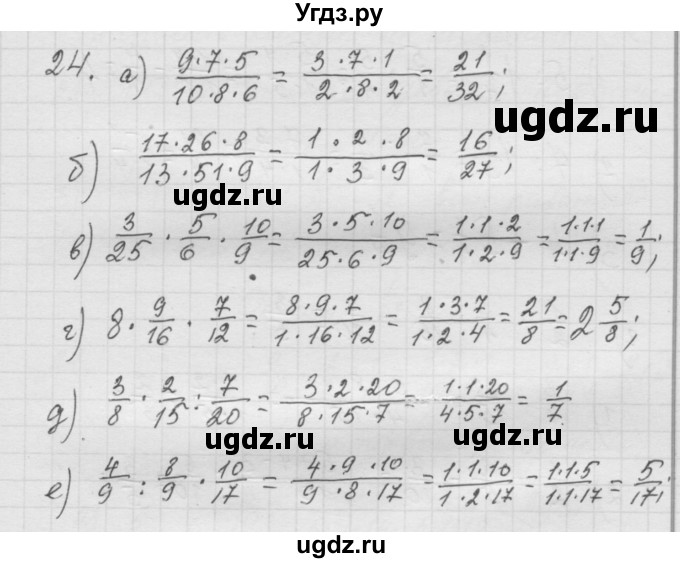 Угдз.ру
24. а) (9·7·5)/(10·8·6) = (3·7·1)/(2·8·2) = 21/32;
ugdz.ru
б) (17·26·8)/(13·51·9) = (1·2·8)/(1·3·9) = 16/27;
ugdz.ru ugdz.ru
в) 3/25 · 5/6 · 10/9 = (3·5·10)/(25·6·9) = (1·1·2)/(1·2·9) = (1·1·1)/(1·1·9) = 1/9;
г) 8 · 9/16 · 7/12 = (8·9·7)/(1·16·12) = (1·3·7)/(1·2·4) = 21/8 = 2 5/8;
д) 3/8 · 2/15 : 7/20 = (3·2·20)/(8·15·7) = (1·1·20)/(4·5·7) = 1/7
ugdz.ru ugdz.ru
е) 4/9 : 8/9 · 10/17 = (4·9·10)/(9·8·17) = (1·1·10)/(1·2·17) = (1·1·5)/(1·1·17) = 5/17;
ugdz.ru